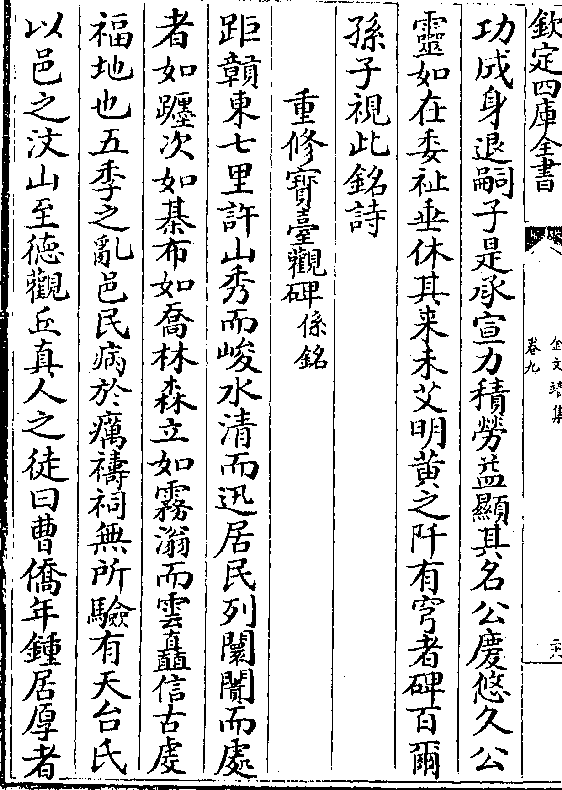 欽定四庫全書
金文靖集
卷九
二六
功成身退嗣子是承宣力積勞益顯其名公慶悠久公
靈如在委祉垂休其来未艾明黄之阡有穹者碑百爾
孫子視此銘詩
重修寳臺觀碑係銘
距贛東七里許山秀而峻水清而迅居民列闤闠而處
者如躔次如棊布如喬林森立如霧滃而雲矗信古䖏
福地也五季之亂邑民病於癘禱祠無所驗有天台氏
以邑之汶山至徳觀丘真人之徒曰曹僑年鍾居厚者